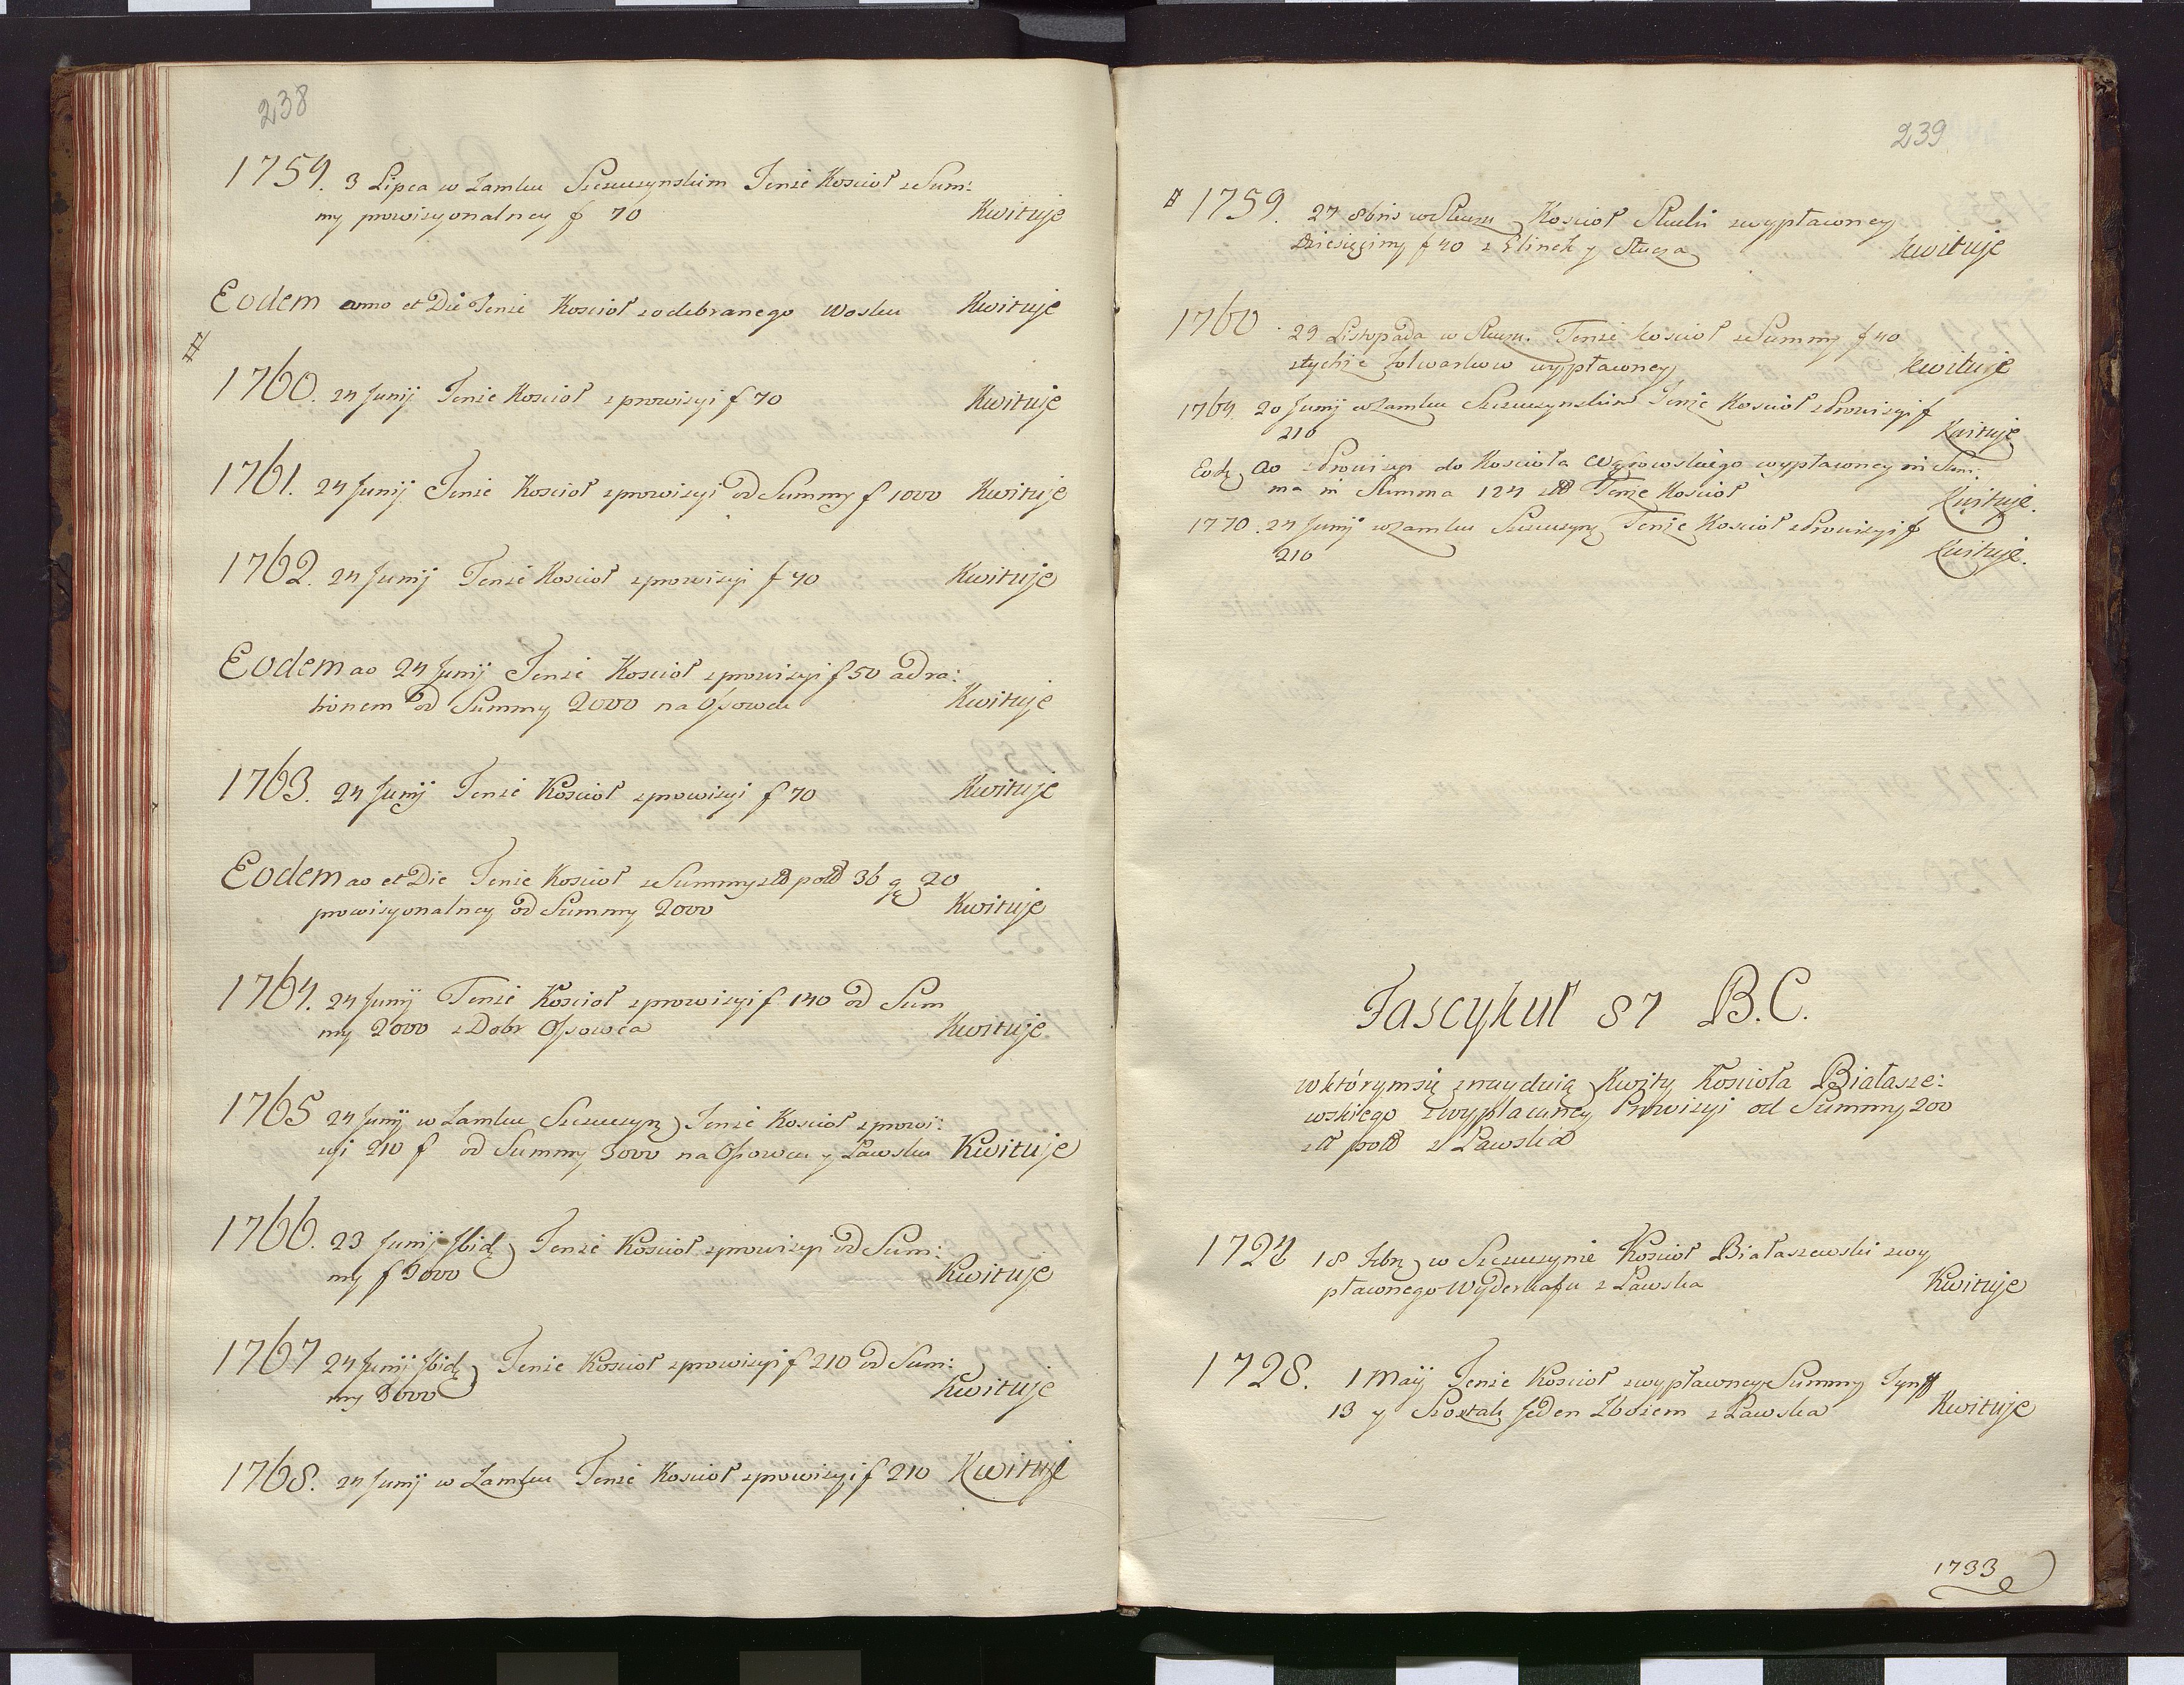 238
1759. 3 Lipca w Zamku Szczuczynskim Tenże Kościoł z Sum:
my prowizyonalney f 70 Kwituje
Eodem anno et Die Tenże Kościoł z odebranego Wosku Kwituje
#
1760. 24 Junij Tenże Kościoł z prowizyi f 70 Kwituje
1761. 24 Junij Tenże Kościoł z prowizyi od Summy f 1000 Kwituje
1762. 24 Junij Tenże Kościoł z prowizyi f 70 Kwituje
Eodem ao 24 Junij Tenże Kościoł z prowizyi f 50 ad ra:
tionem od Summy 2000 na Ossowcu Kwituje
1763. 24 Junij Tenże Kościoł z prowizyi f 70 Kwituje
Eodem ao et Die Tenże Kościoł z Summy zł pol 36 g 20
prowizyonalney od Summy 2000 Kwituje
1764. 24 Junij Tenże Kościoł z prowizyi f 140 od Sum
my 2000 z Dobr Ossowca Kwituje
1765 24 Junij w Zamku Szczuczyn Tenże Kościoł z prowi:
zyi 210 f od Summy 3000 na Ossowcu y Ławsku Kwituje
1766. 23 Junij Ibid Tenże Kościoł z prowizyi od Sum:
my f 3000 Kwituje
1767 24 Junij Ibid Tenże Kościoł z prowizyi f 210 od Sum:
my 3000 Kwituje
1768. 24 Junij w Zamku Tenże Kościoł z prowizyi f 210 Kwituje
239
# 1759. 27 8bris w Kościoł z wypławney
Dziesięciny f 40 z y Kwituje
1760. 29 Listopada w Tenże Kościoł z Summy f 40
z tychże folwarkow wypławney Kwituje
1769. 20 Junij w Zamku Szczuczynskim Tenże Kościoł z Prowizyi f
210 Kwituje
Eod ao z Prowizyi do Kościoła Wąsowskiego wypławney in Sum:
ma in Summa 124 zł Tenże Kościoł Kwituje.
1770. 24 Junij w Zamku Szczuczyn Tenże Kościoł z Prowizyi f
210 Kwituje.
Fascykuł 87 B.C.
w którym się znayduią Kwity Kościoła Białasze:
wskiego z wypłacaney Prowizyi od Summy 200
zł pol z Ławska
1724 18 Xbr w Szczuczynie Kościoł Białaszewski z wy
pławnego Wyderkafu z Ławska Kwituje
1728. 1 Maij Tenże Kościoł z wypławney Summy Tynff
13 y Szostak Jeden Zbożem z Ławska Kwituje
1733